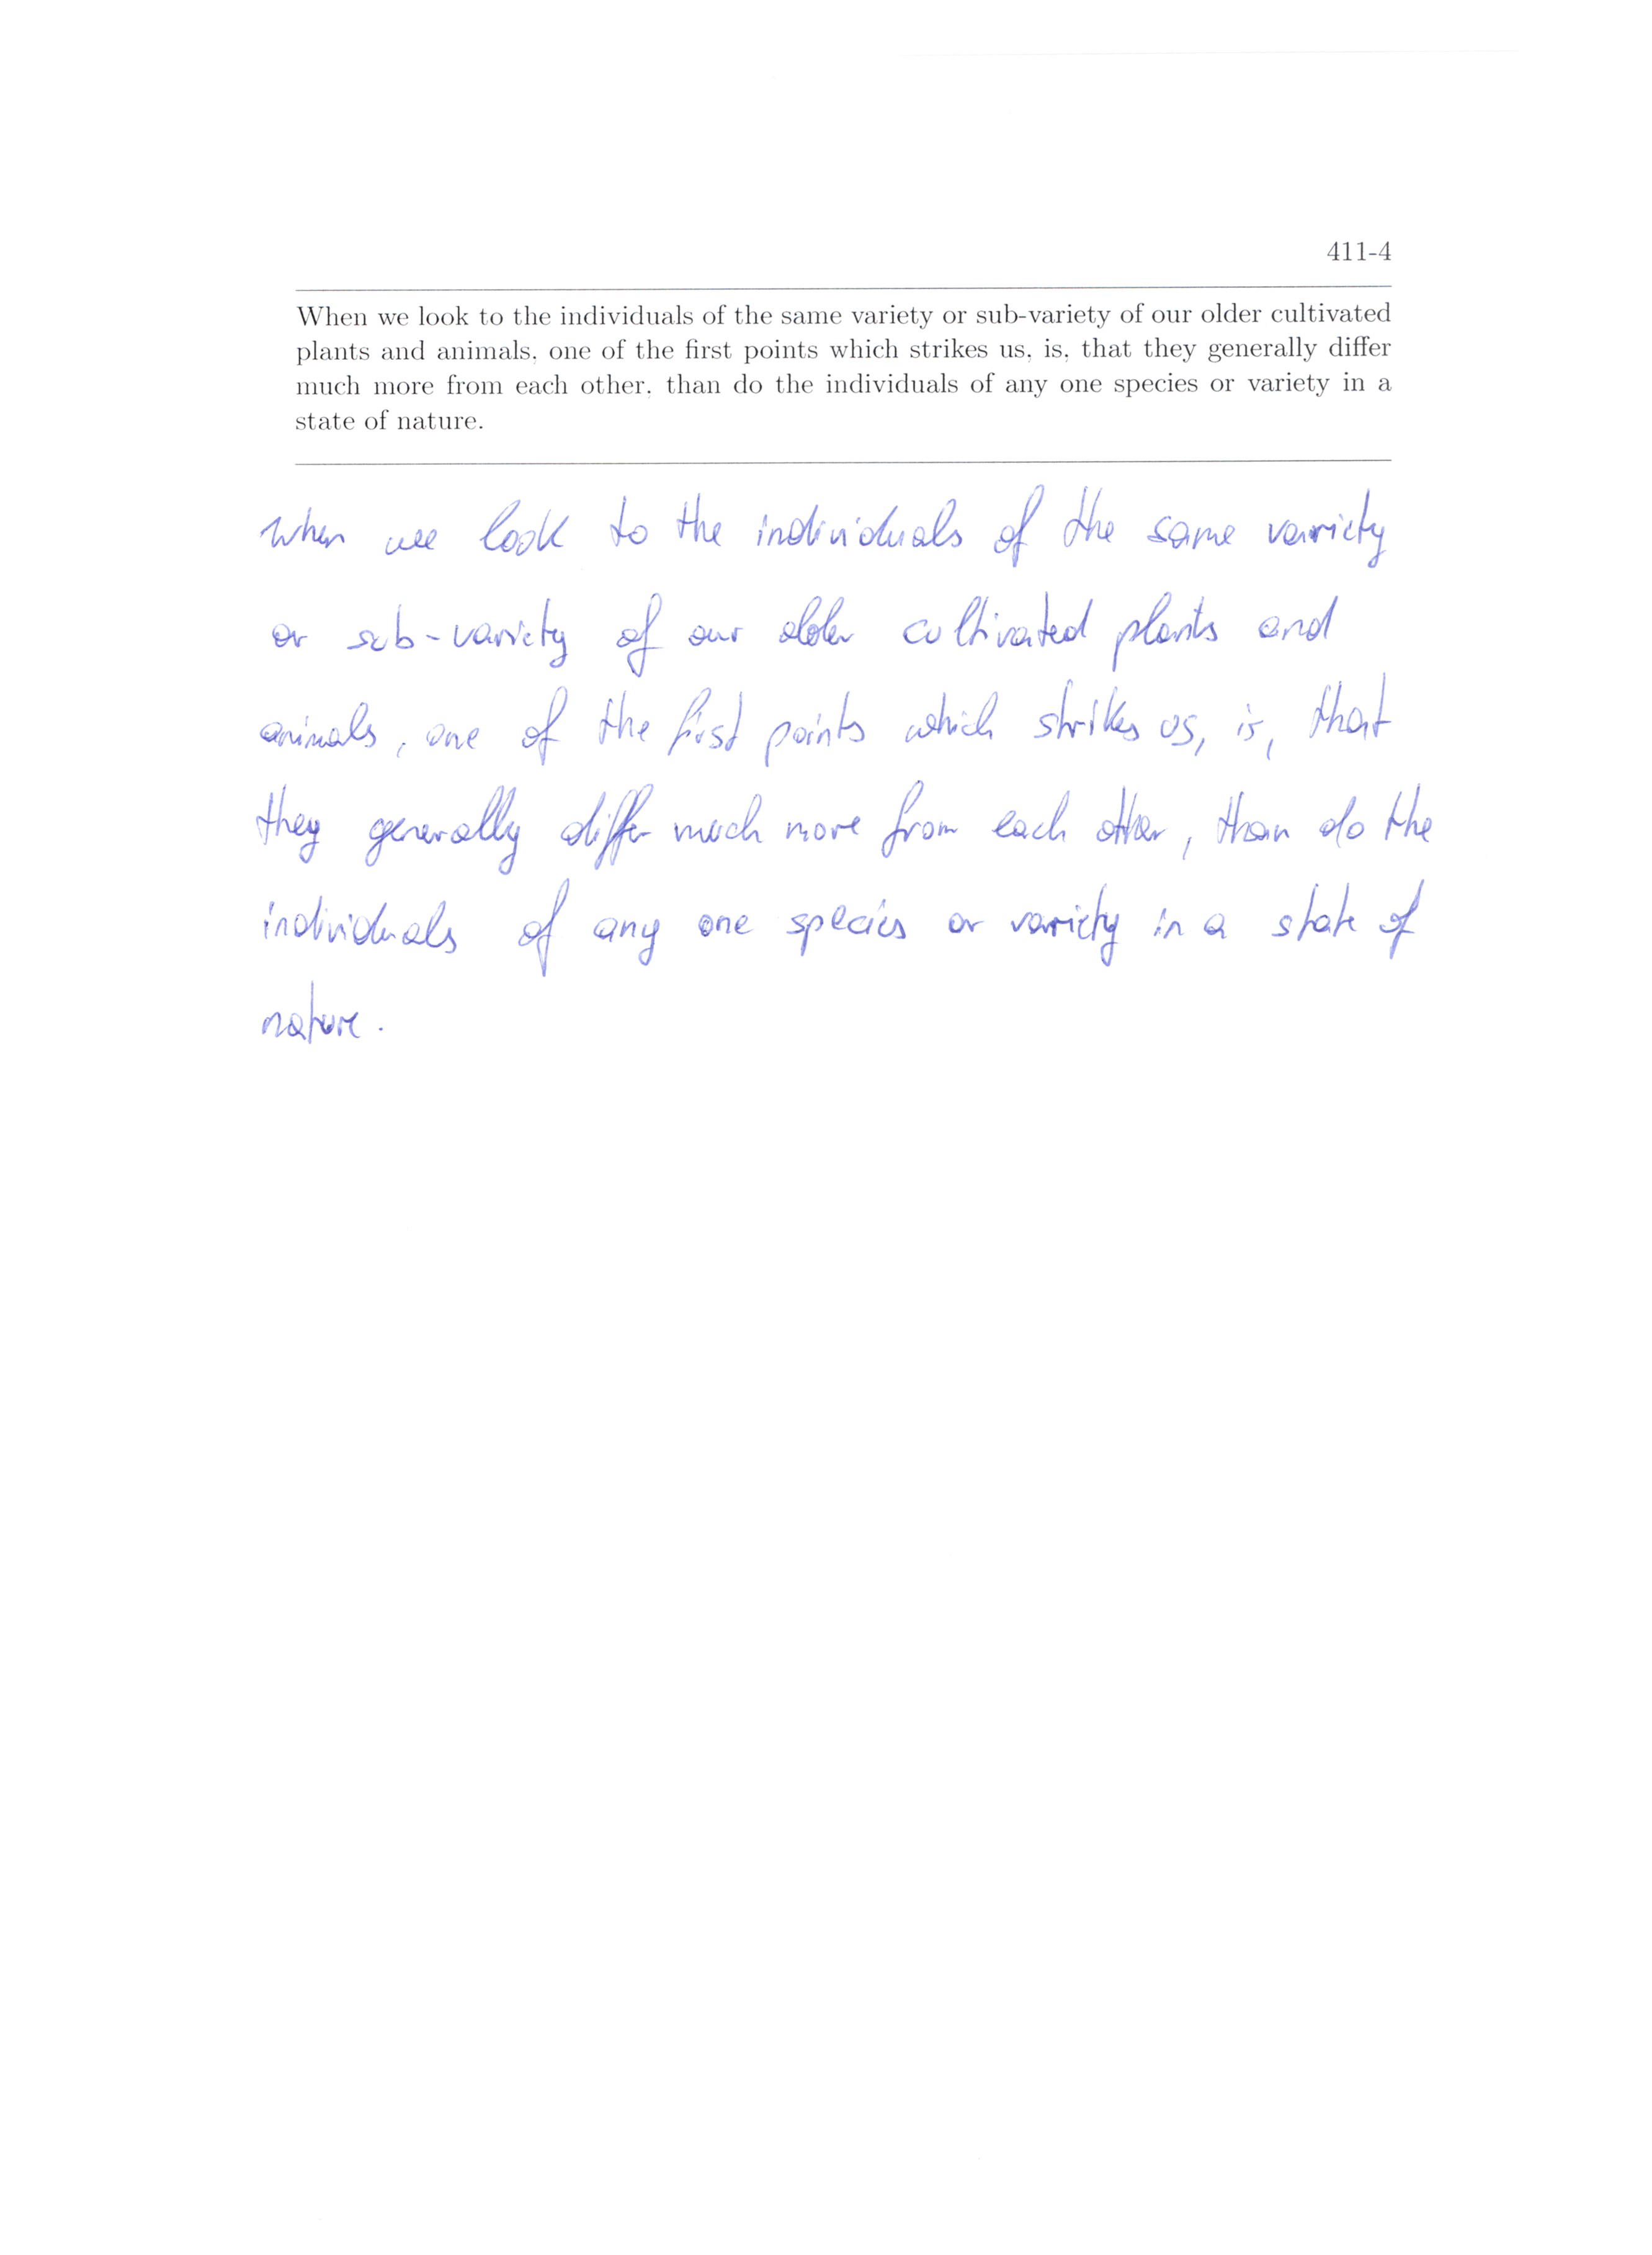 411-4
When we look to the individuals of the same variety or sub-variety of our older cultivated
plants and animals, one of the first points which strikes us, is, that they generally differ
much more from each other, than do the individuals of any one species or variety in a
state of nature.
When we look to the individuals of the same variety
or sub-variety of our older cultivated plants and
animals, one of the first points which strikes us, is, that
they generally differ much more from each other, than do the
individuals of any one species or variety in a state of
nature.